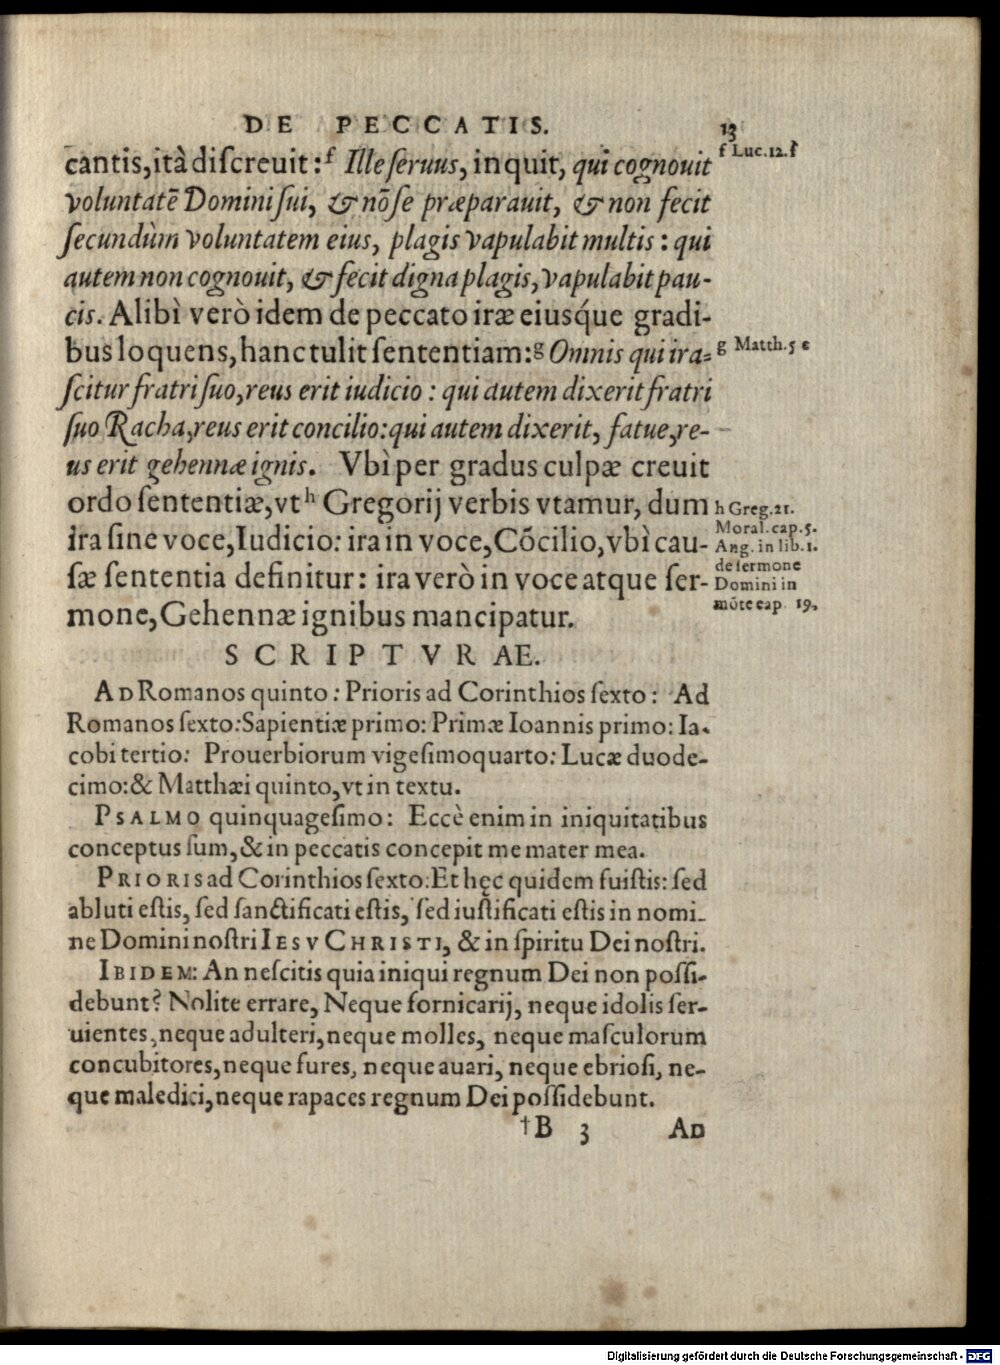 DE PECCATIS. 13
cantis, ità discreuit: f Ille seruus, inquit, qui cognouit
voluntatē Domini sui, & nō se præparauit, & non fecit
secundùm voluntatem eius, plagis vapulabit multis: qui
autem non cognouit, & fecit digna plagis, vapulabit pau-
cis. Alibì verò idem de peccato iræ eiusq́ue gradi-
bus loquens, hanc tulit sententiam: g Omnis qui ira-
scitur fratri suo, reus erit iudicio: qui autem dixerit fratri
suo Racha, reus erit concilio: qui autem dixerit, fatue, re-
us erit gehennæ ignis. Vbì per gradus culpæ creuit
ordo sententiæ, vt h Gregorij verbis vtamur, dum
ira sine voce, Iudicio: ira in voce, Cōcilio, vbì cau-
sæ sententia definitur: ira verò in voce atque ser-
mone, Gehennæ ignibus mancipatur.
f Luc. 12. f
g Matth. 5 e
h Greg. 21.
Moral. cap. 5.
Aug. in lib. 1.
de sermone
Domini in
mōte cap. 19.
SCRIPTVRAE.
AD Romanos quinto: Prioris ad Corinthios sexto: Ad
Romanos sexto: Sapientiæ primo: Primæ Ioannis primo: Ia-
cobi tertio: Prouerbiorum vigesimoquarto: Lucæ duode-
cimo: & Matthæi quinto, vt in textu.
PSALMO quinquagesimo: Eccè enim in iniquitatibus
conceptus sum, & in peccatis concepit me mater mea.
PRIORIS ad Corinthios sexto: Et hęc quidem fuistis: sed
abluti estis, sed sanctificati estis, sed iustificati estis in nomi-
ne Domini nostri IESV CHRISTI, & in spiritu Dei nostri.
IBIDEM: An nescitis quia iniqui regnum Dei non possi-
debunt? Nolite errare, Neque fornicarij, neque idolis ser-
uientes, neque adulteri, neque molles, neque masculorum
concubitores, neque fures, neque auari, neque ebriosi, ne-
que maledici, neque rapaces regnum Dei possidebunt.
†B 3 AD
Digitalisierung gefördert durch die Deutsche Forschungsgemeinschaft - DFG